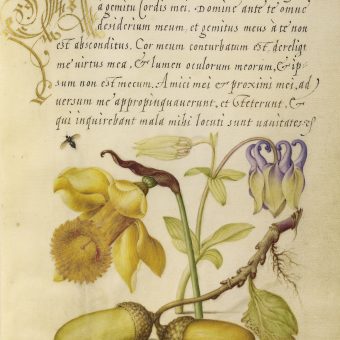 a gemitu cordis mei. Domine ante te omne
desiderium meum, et gemitus meus à te non
est absconditus. Cor meum conturbatum est, dereliqt
me virtus mea, & lumen oculorum meorum, & ip-
sum non est mecum. Amici mei & proximi mei, ad
versum me appropinquauerunt, et steterunt. &
qui inquirebant mala mihi locuti sunt uanitates &